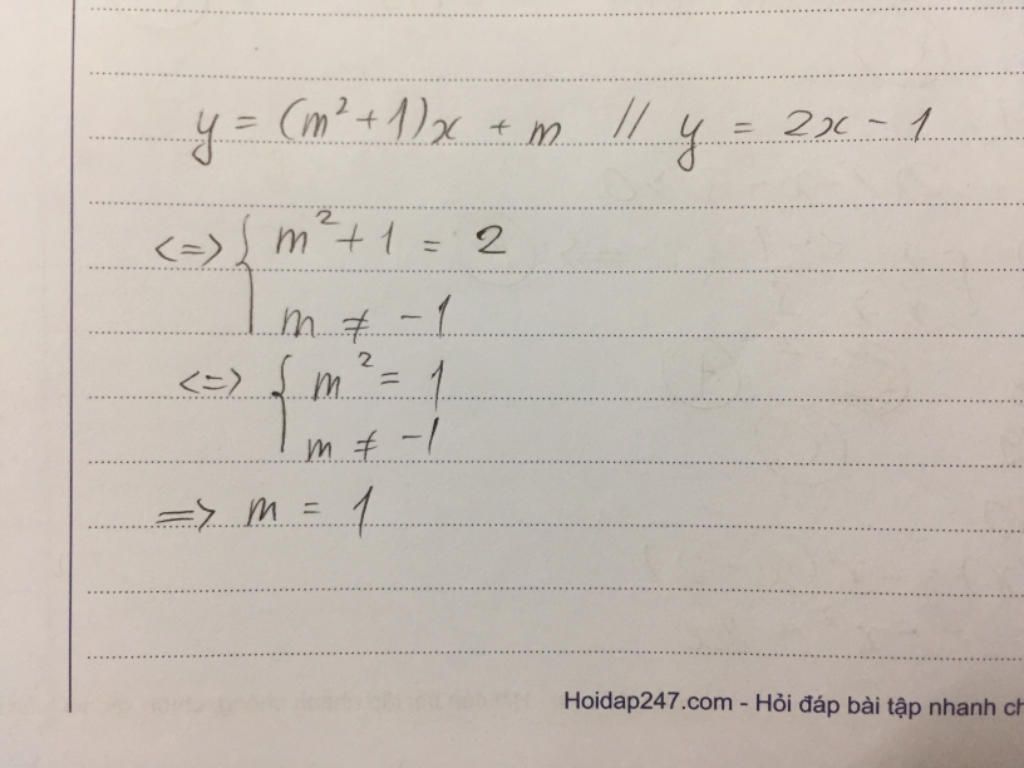 y = (m² + 1)x + m // y = 2x - 1
<=> { m² + 1 = 2
m ≠ -1
<=> { m² = 1
m ≠ -1
=> m = 1
Hoidap247.com - Hỏi đáp bài tập nhanh ch